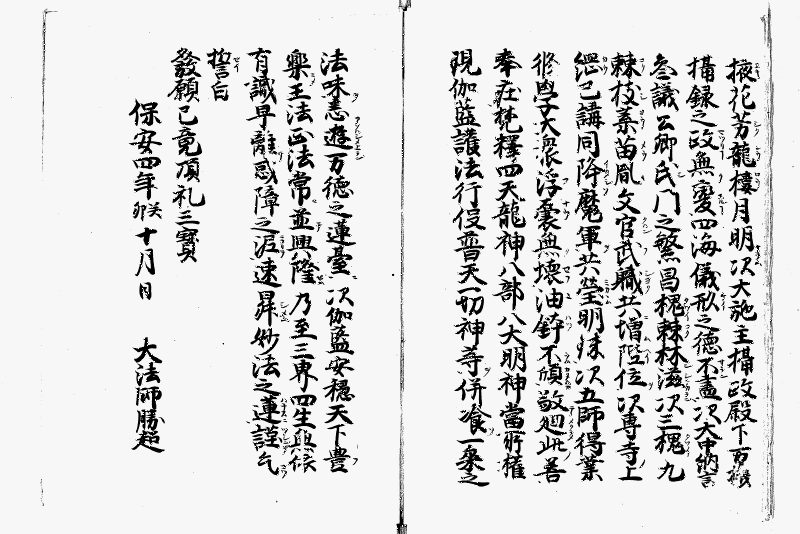 掖花芳龍樓月明次大施主攝政殿下万機
攝録之政無變四海儀形之徳不盡次大中納言
参議公卿氏門之繁昌槐棘林滋次三槐九
棘枝葉苗胤文官武職共増階位次専寺上
綱已講同降魔軍共瑩明珠次五師得業
修學大衆浮嚢無壊油鉢不傾敬廻此善
奉荘梵釋四天龍神八部八大明神當所權
現伽藍護法行役普天一切神等併飡一乗之
法味悉遊万徳之蓮臺次伽藍安穏天下豊
樂王法正法常並興隆乃至三界四生與
有識早離惑障之泥速昇妙法之蓮謹乞
誓白
發願已竟頂礼三寶
保安四年癸卯十月日 大法師勝超